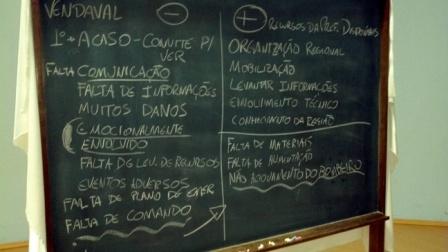 VENDAVAL
-
1º ACASO - CONVITE P/
VER
FALTA COMUNICAÇÃO
FALTA DE INFORMAÇÕES
MUITOS DANOS
EMOCIONALMENTE
ENVOLVIDO
FALTA DE LEV. DE RECURSOS
EVENTOS ADVERSOS
FALTA DE PLANO DE
FALTA DE COMANDO
+
RECURSOS DA PREF. DISPONÍVEIS
ORGANIZAÇÃO REGIONAL
MOBILIZAÇÃO
LEVANTAR INFORMAÇÕES
ENVOLVIMENTO TÉCNICO
CONHECIMENTO DA REGIÃO
FALTA DE MATERIAIS
FALTA DE ALIMENTAÇÃO
NÃO ACIONAMENTO DO BOMBEIRO